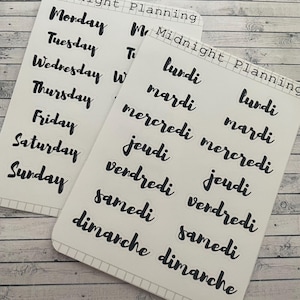 Midnight Planning
Monday
Tuesday
Wednesday
Thursday
Friday
Saturday
Sunday
Midnight Planning
lundi lundi
mardi mardi
mercredi mercredi
jeudi jeudi
vendredi vendredi
samedi samedi
dimanche dimanche